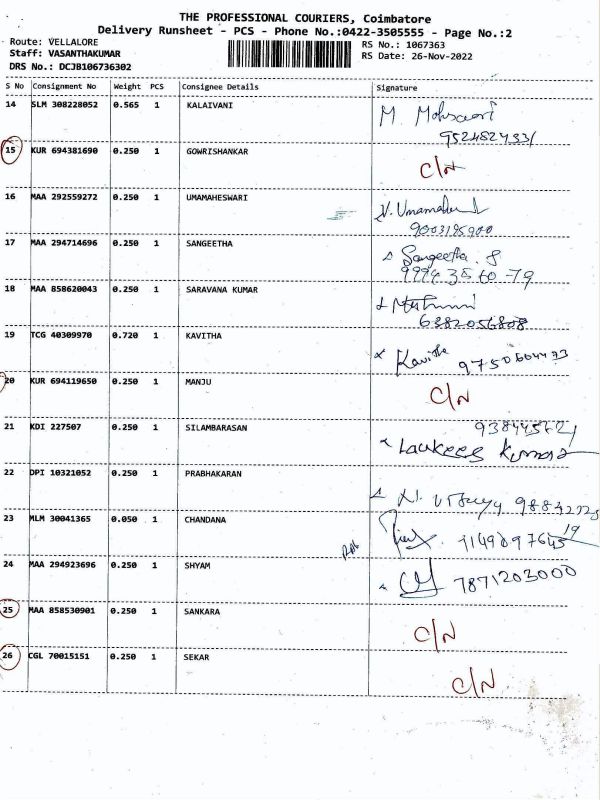 THE PROFESSIONAL COURIERS, Coimbatore
Delivery Runsheet - PCS - Phone No.:0422-3505555 - Page No.:2
Route: VELLALORE
Staff: VASANTHAKUMAR
DRS No.: DCJB106736302
RS No.: 1067363
RS Date: 26-Nov-2022
S No Consignment No Weight PCS Consignee Details Signature
14 SLM 308228052 0.565 1 KALAIVANI M.
9524824331
15 KUR 694381690 0.250 1 GOWRISHANKAR C/N
16 MAA 292559272 0.250 1 UMAMAHESWARI
9003195900
17 MAA 294714696 0.250 1 SANGEETHA Sangeetha. S
9994 35 60 -79
18 MAA 858620043 0.250 1 SARAVANA KUMAR
6382056808
19 TCG 40309970 0.720 1 KAVITHA Kavitha
20 KUR 694119650 0.250 1 MANJU C/N
21 KDI 227507 0.250 1 SILAMBARASAN
22 DPI 10321052 0.250 1 PRABHAKARAN
23 MLM 30041365 0.050 1 CHANDANA
24 MAA 294923696 0.250 1 SHYAM 7871203000
25 MAA 858530901 0.250 1 SANKARA C/N
26 CGL 70015151 0.250 1 SEKAR C/N